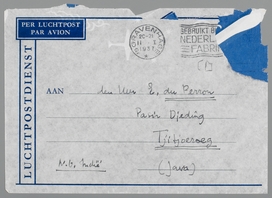 PER LUCHTPOST
PAR AVION
LUCHTPOSTDIENST
'S GRAVENHAGE
1937
GEBRUIKT
NEDERL
FABRI
AAN
den Heer E. du Perron
Parit Djeding
Tjitjoeroeg
(Java)
N.O. Indië